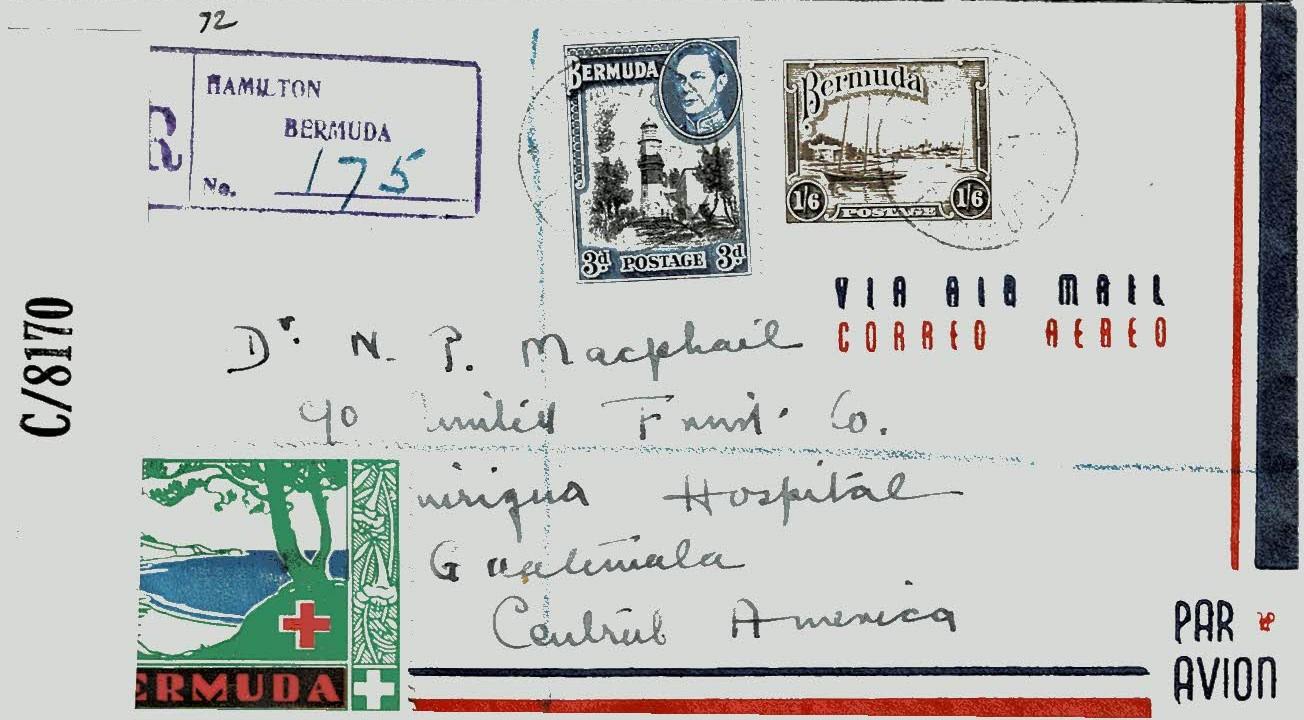 72
HAMILTON
BERMUDA
R
No. 175
BERMUDA
3d POSTAGE 3d
Bermuda
1/6 POSTAGE 1/6
VIA AIR MAIL
CORREO AEREO
C/8170
Dr. N. P. Macphail
c/o United Fruit Co.
uirigua Hospital
Guatemala
Central America
ERMUDA
PAR
AVION